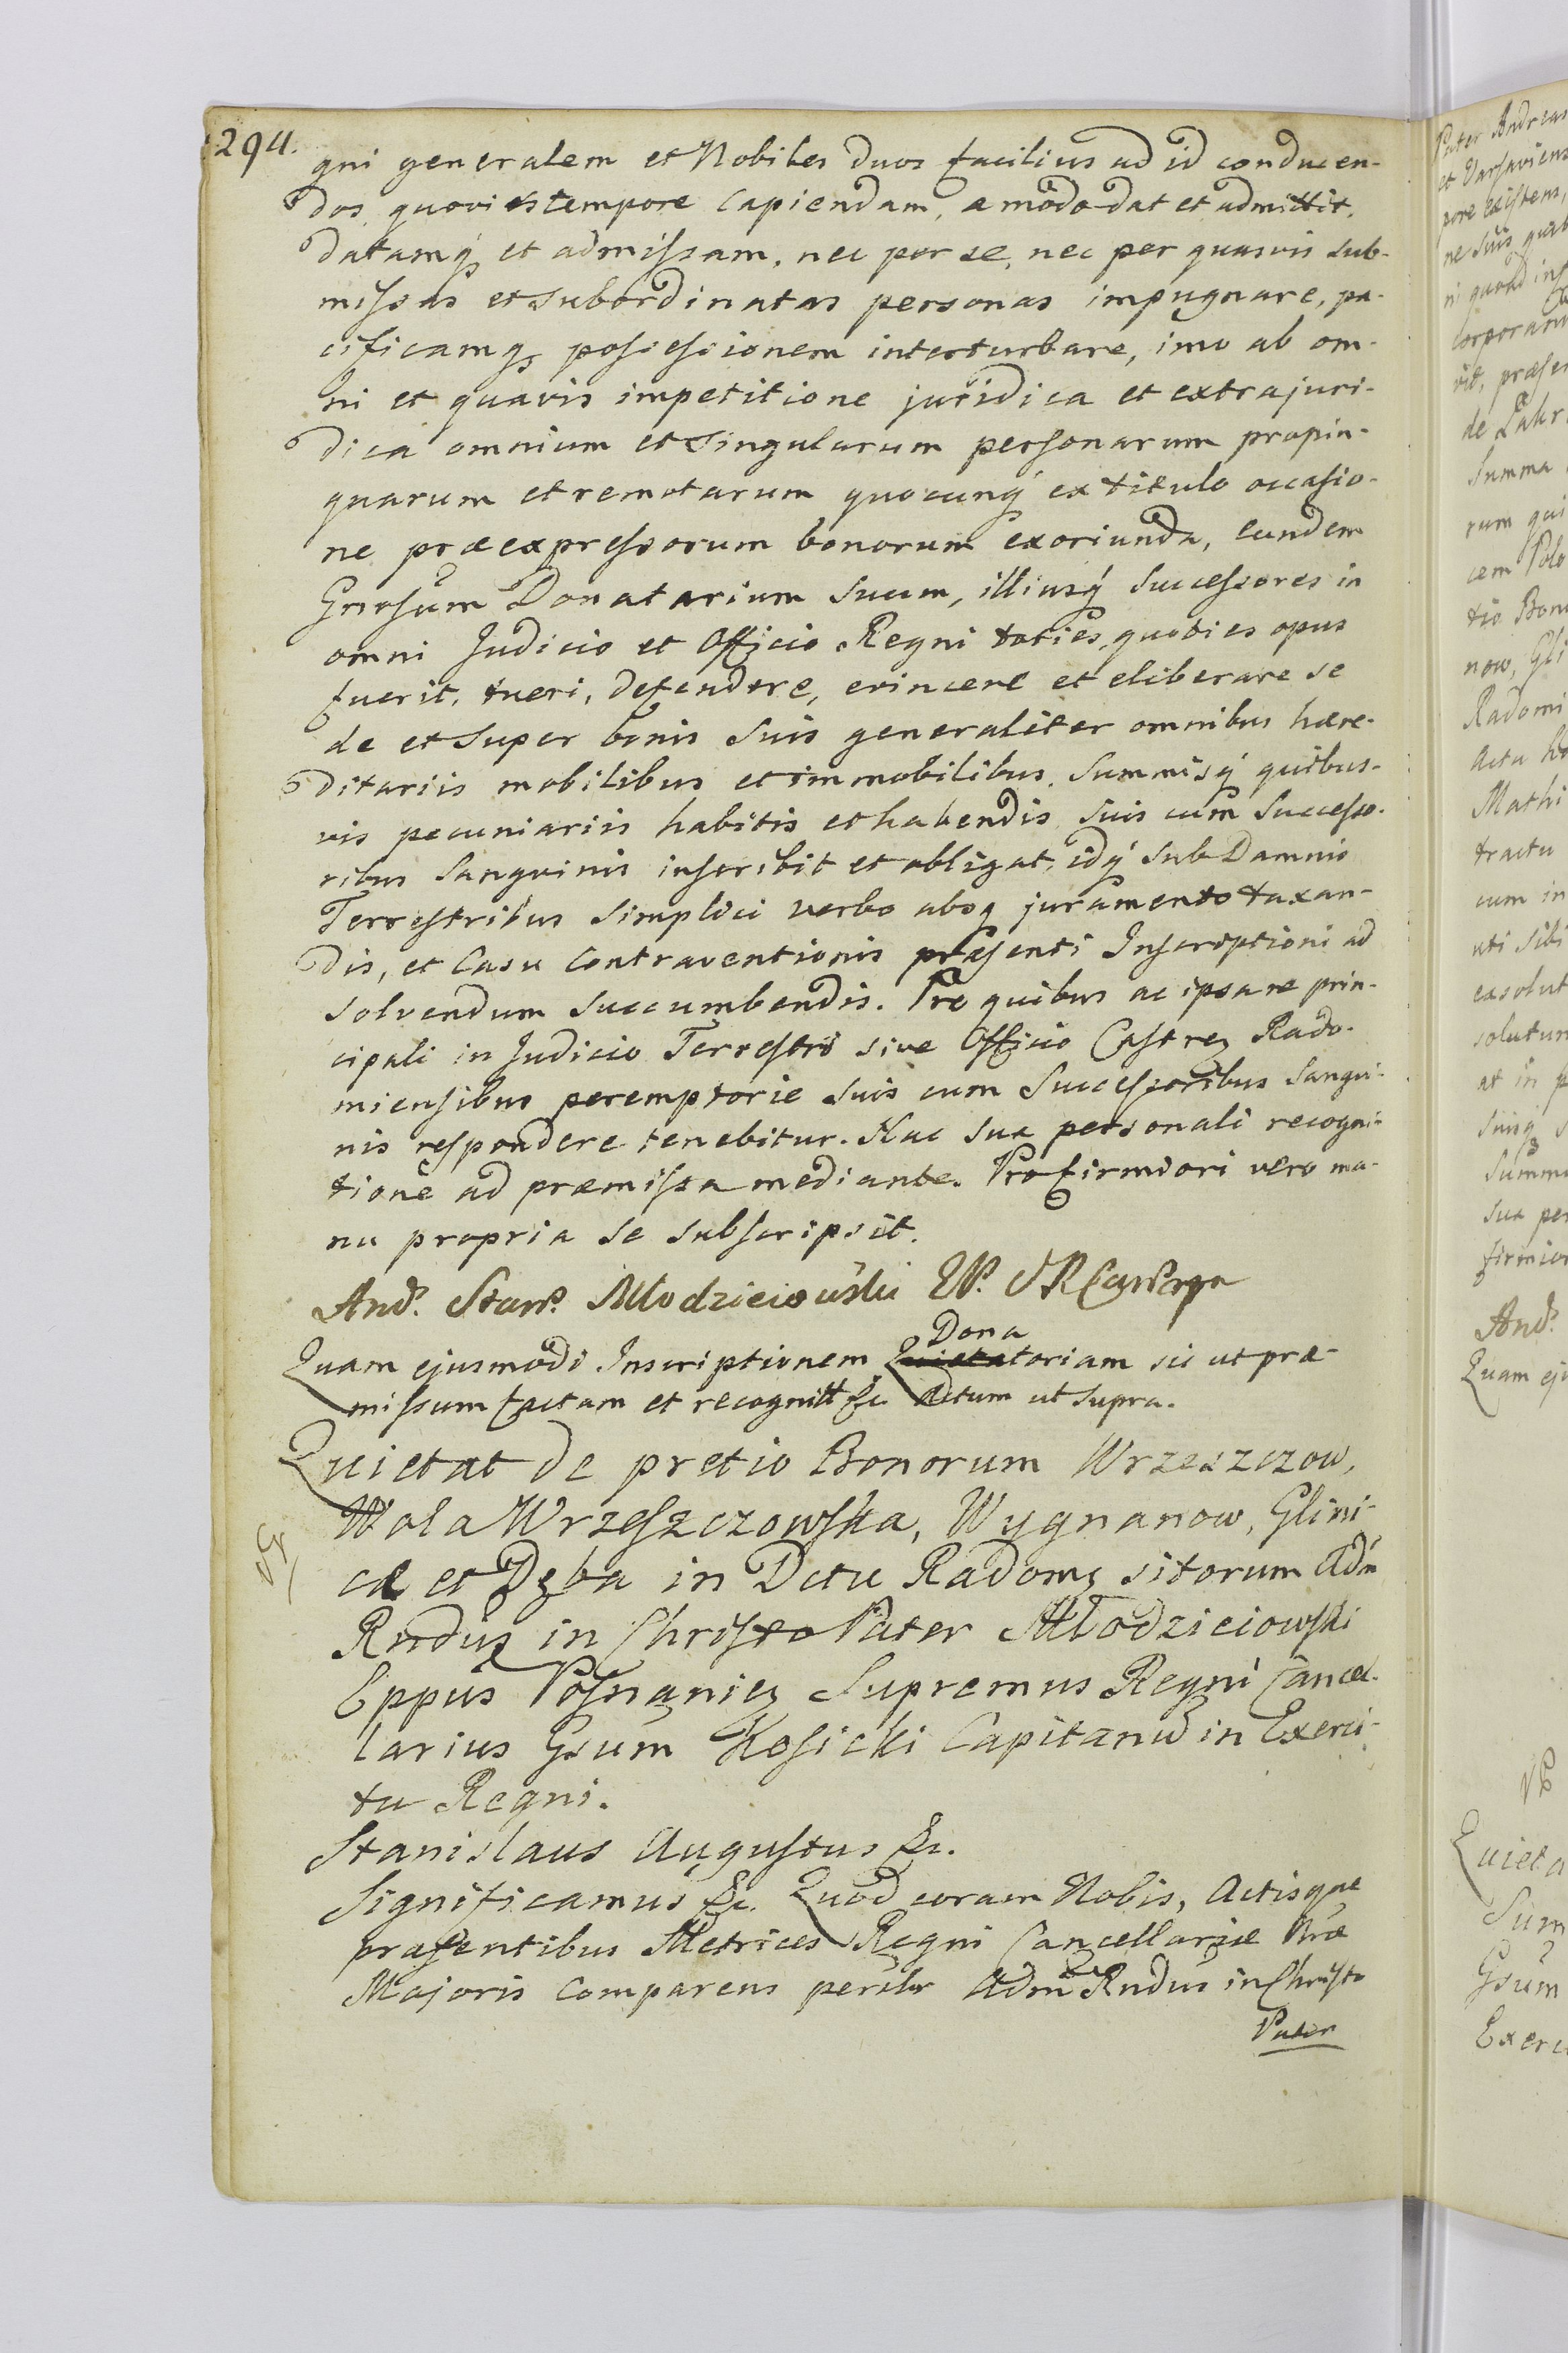 294.
gni generalem et Nobiles duos facilius ad id conducen-
dos quovistempore capiendam, a modo dat et admittit,
datamq́ et admiſsam, nec per se, nec per quasvis sub-
miſsas et subordinatas personas impugnare, pa-
cificamq́ poſseſsionem interturbare, imo ab om-
ni et quavis impetitione juridica et extrajuri-
dica omnium et singularum perſonarum propin-
quarum et remotarum quocunq́ ex titulo occaſio-
ne præexpreſsorum bonorum exoriunda, eundem
Gnroſum Donatarium suum, illiusq́ succeſsores in
omni Judicio et Officio Regni toties, quoties opus
fuerit, tueri, defendere, evincere et eliberare se
de et super bonis suis generaliter omnibus hære-
ditariis mobilibus et immobilibus, summisq́ quibus-
vis pecuniariis habitis et habendis suis cum succeſso-
ribus sanguinis inſcribit et obligat, idq́ sub Damnis
Terreſtribus simplici verbo absq juramento taxan-
dis, et casu contraventionis præſenti Inſcriptioni ad
solvendum succumbendis. Pro quibus ac ipsa re prin-
cipali in Judicio Terreſtri sive Officio Caſtreꝫ Rado-
mienſibus peremptorie suis cum succeſsoribus sangui-
nis reſpondere tenebitur. Hac sua personali recogni-
tione ad præmiſsa mediante. Pro firmiori vero ma-
nu propria se subſcripsit.
And. Stan. Młodzieiowski EP.
Dona
Quam ejusmodi Inscriptionem Quietatoriam sic ut præ-
miſsum factam et recognitt &c. Actum ut supra.
Quietat de pretio Bonorum Wrzeszczow,
Wola Wrzeſzczowſka, Wygnanow, Glini-
ce et Dęba in Dctu Radomꝫ sitorum Adm̃
Rndus in Chriſto Pater Młodzieiowſki
Eppus Poſnanieꝫ Supremus Regni Cancel-
larius Gsum Kosicki Capitanũ in Exerci-
tu Regni.
Stanislaus Auguſtus &c.
Significamus &c. Quod coram Nobis, Actisque
præſentibus Metrices Regni Cancellariæ Nræ
Majoris comparens perſlr Adm̃ Rndus in Chriſto
Pater
Pater Andreas